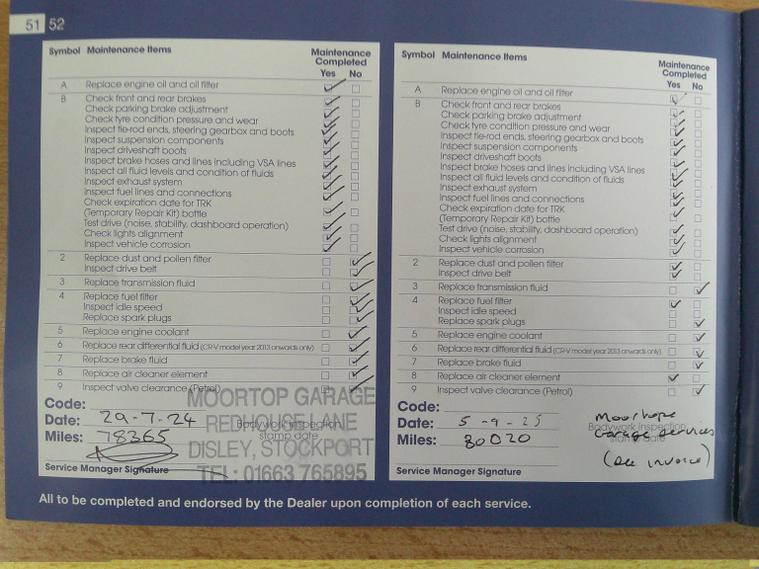 51 52
Symbol Maintenance Items Maintenance Completed
Yes No
A Replace engine oil and oil filter
B Check front and rear brakes
Check parking brake adjustment
Check tyre condition pressure and wear
Inspect tie-rod ends, steering gearbox and boots
Inspect suspension components
Inspect driveshaft boots
Inspect brake hoses and lines including VSA lines
Inspect all fluid levels and condition of fluids
Inspect exhaust system
Inspect fuel lines and connections
Check expiration date for TRK
(Temporary Repair Kit) bottle
Test drive (noise, stability, dashboard operation)
Check lights alignment
Inspect vehicle corrosion
2 Replace dust and pollen filter
Inspect drive belt
3 Replace transmission fluid
4 Replace fuel filter
Inspect idle speed
Replace spark plugs
5 Replace engine coolant
6 Replace rear differential fluid (CR-V model year 2013 onwards only)
7 Replace brake fluid
8 Replace air cleaner element
9 Inspect valve clearance (Petrol)
Code:
Date: 29-7-24
Miles: 78365
Service Manager Signature
Bodywork inspection
stamp date
MOORTOP GARAGE
REDHOUSE LANE
DISLEY, STOCKPORT
TEL: 01663 765895
Symbol Maintenance Items Maintenance Completed
Yes No
A Replace engine oil and oil filter
B Check front and rear brakes
Check parking brake adjustment
Check tyre condition pressure and wear
Inspect tie-rod ends, steering gearbox and boots
Inspect suspension components
Inspect driveshaft boots
Inspect brake hoses and lines including VSA lines
Inspect all fluid levels and condition of fluids
Inspect exhaust system
Inspect fuel lines and connections
Check expiration date for TRK
(Temporary Repair Kit) bottle
Test drive (noise, stability, dashboard operation)
Check lights alignment
Inspect vehicle corrosion
2 Replace dust and pollen filter
Inspect drive belt
3 Replace transmission fluid
4 Replace fuel filter
Inspect idle speed
Replace spark plugs
5 Replace engine coolant
6 Replace rear differential fluid (CR-V model year 2013 onwards only)
7 Replace brake fluid
8 Replace air cleaner element
9 Inspect valve clearance (Petrol)
Code:
Date: 5-9-25
Miles: 80020
Service Manager Signature
Bodywork inspection
stamp date
Garage services
(See invoice)
All to be completed and endorsed by the Dealer upon completion of each service.